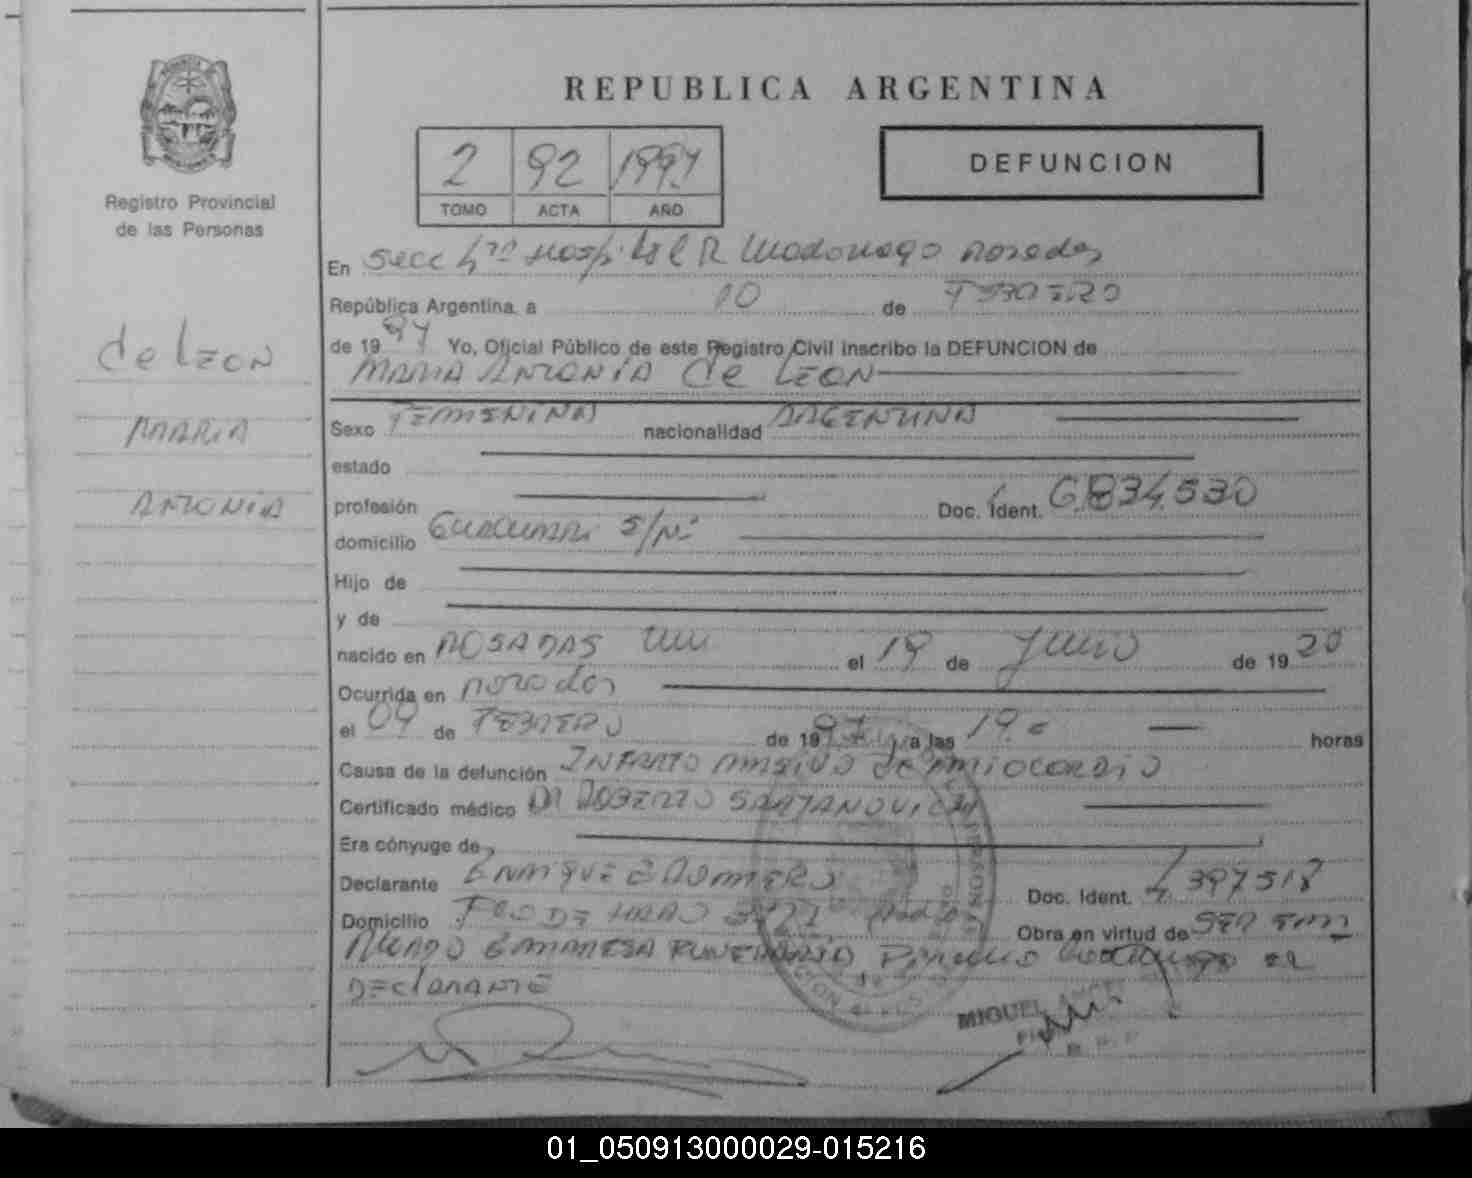 REPUBLICA ARGENTINA
2 92 1997
TOMO ACTA AÑO
DEFUNCION
Registro Provincial
de las Personas
de LEON
MARIA
ANTONIA
En Secc 4ta Hospital R Madariaga Posadas
República Argentina, a 10 de FEBRERO
de 1997 Yo, Oficial Público de este Registro Civil inscribo la DEFUNCION de
MARIA ANTONIA de LEON
Sexo FEMENINA nacionalidad ARGENTINA
estado
profesión Doc. Ident. 6.834.530
domicilio s/Nº
Hijo de
y de
nacido en POSADAS el 19 de de 1920
Ocurrida en Posadas
el 09 de FEBRERO de 1997 a las 19 horas
Causa de la defunción INFARTO MASIVO de MIOCARDIO
Certificado médico DR ROBERTO
Era cónyuge de
Declarante ENRIQUE Doc. Ident. 397518
Domicilio FCO DE HARO Obra en virtud de SER
EMPRESA FUNERARIA EL
DECLARANTE
MIGUEL ANGEL
01_050913000029-015216